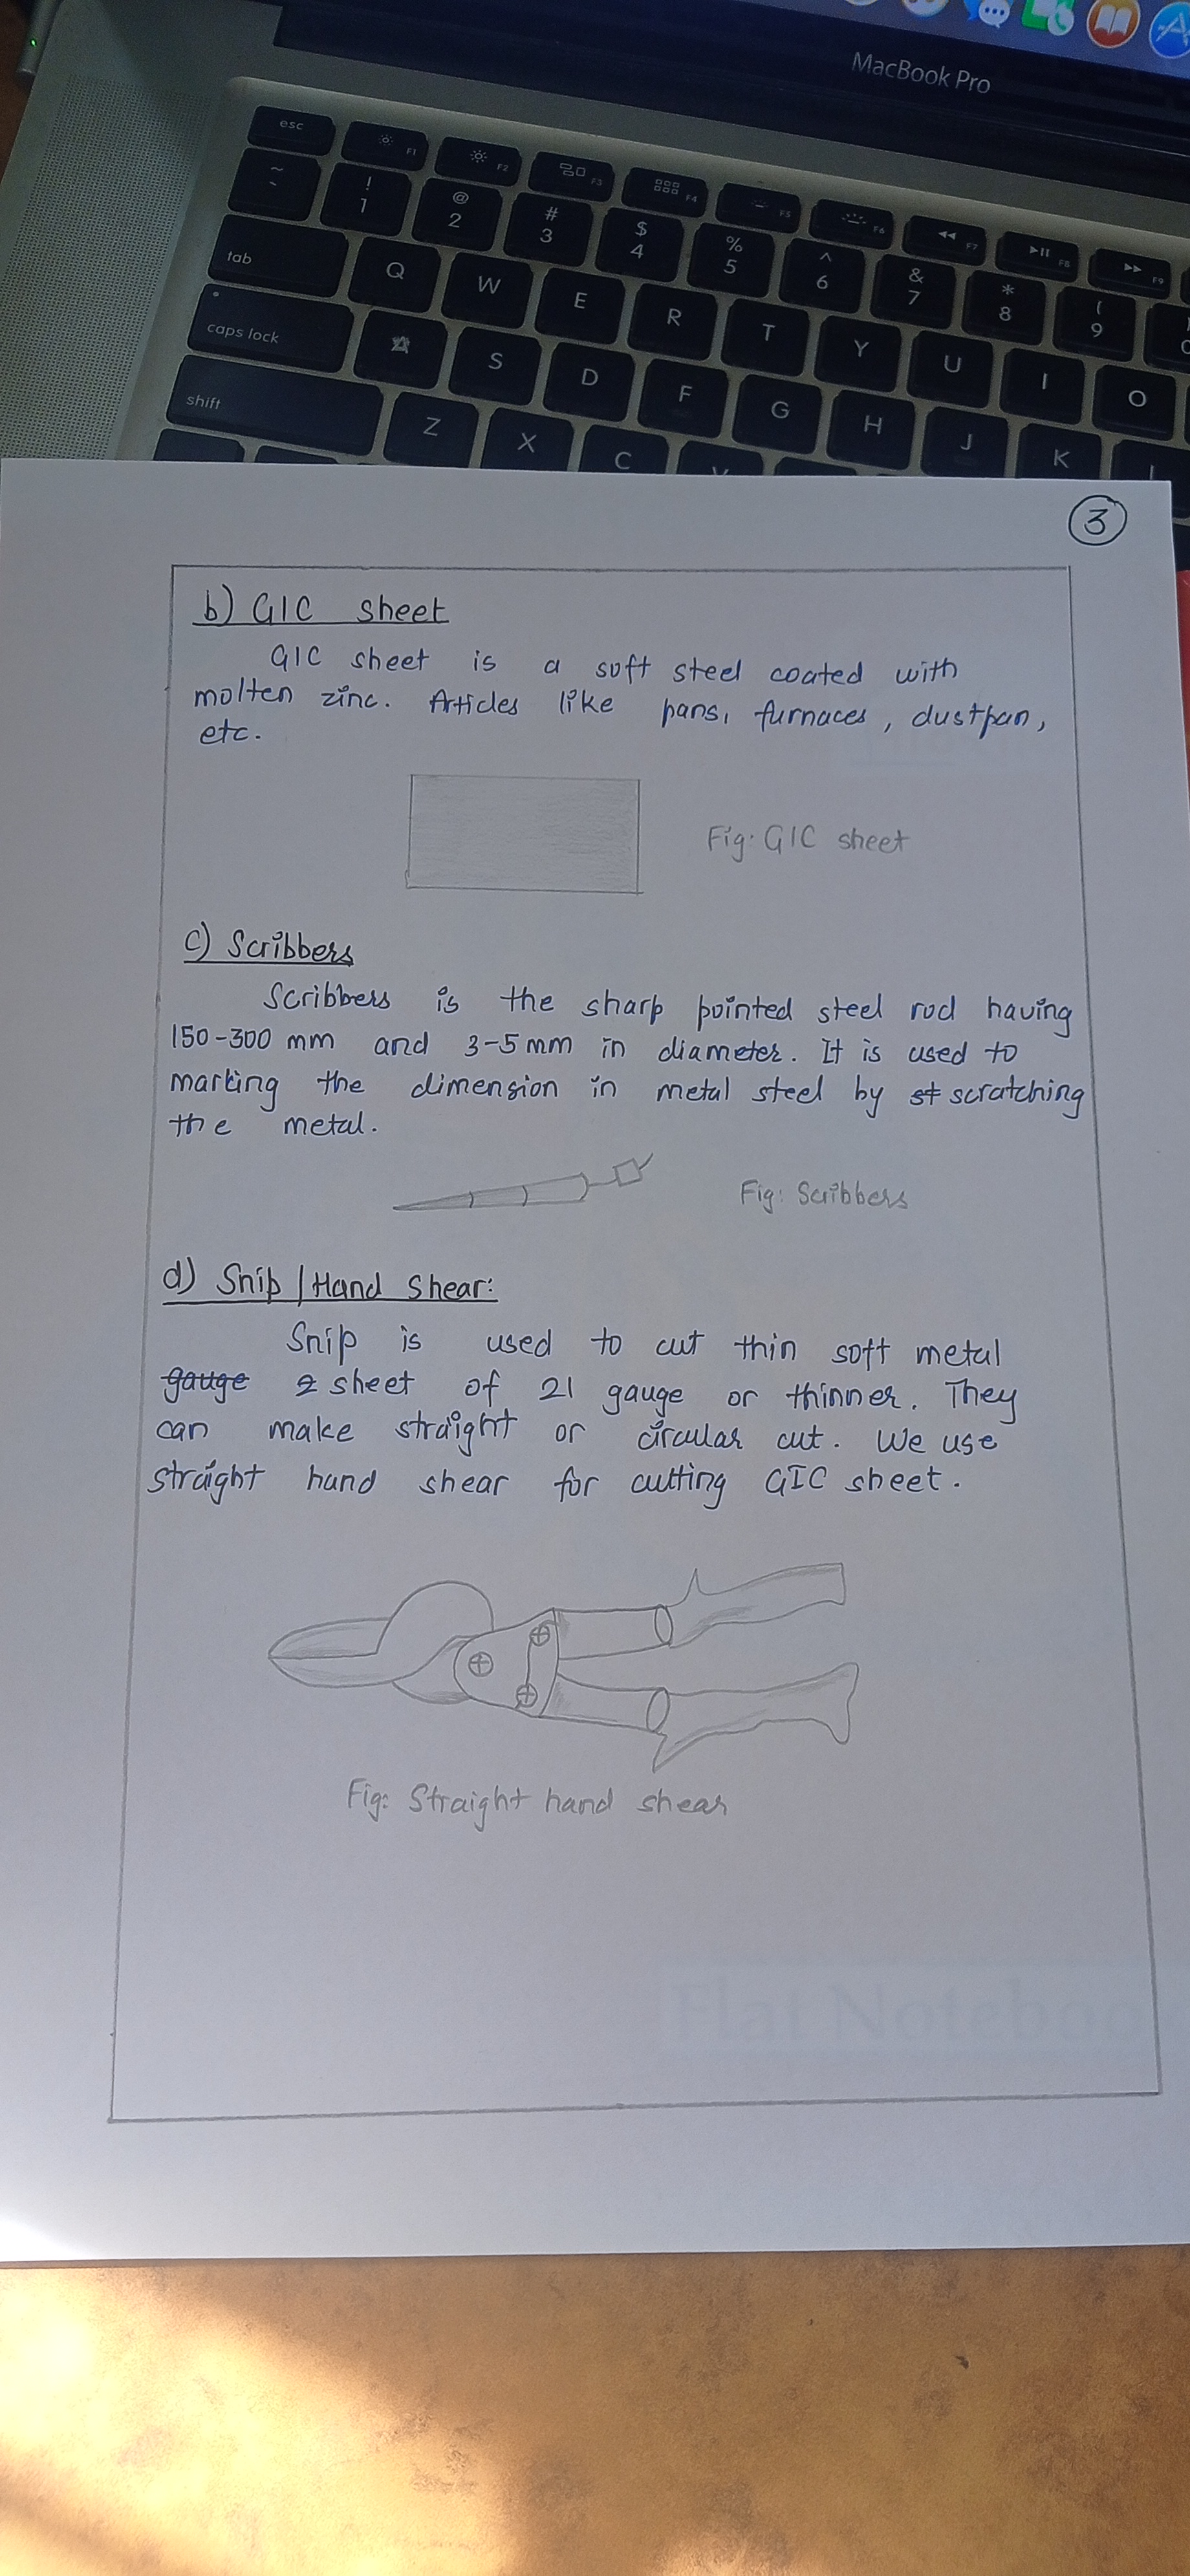 MacBook Pro
esc F1 F2 F3 F4 F5 F6 F7 F8 F9
~ ! 1 @ 2 # 3 $ 4 % 5 ^ 6 & 7 * 8 ( 9
tab Q W E R T Y U I O
caps lock S D F G H J K
shift Z X C
3
b) GIC sheet
GIC sheet is a soft steel coated with
molten zinc. Articles like pans, furnaces, dustpan,
etc.
Fig: GIC sheet
c) Scribbers
Scribbers is the sharp pointed steel rod having
150-300 mm and 3-5 mm in diameter. It is used to
marking the dimension in metal steel by st scratching
the metal.
Fig: Scribbers
d) Snip / Hand Shear:
Snip is used to cut thin soft metal
gauge 2 sheet of 21 gauge or thinner. They
can make straight or circular cut. We use
straight hand shear for cutting GIC sheet.
Fig: Straight hand shear
Flat Noteboo